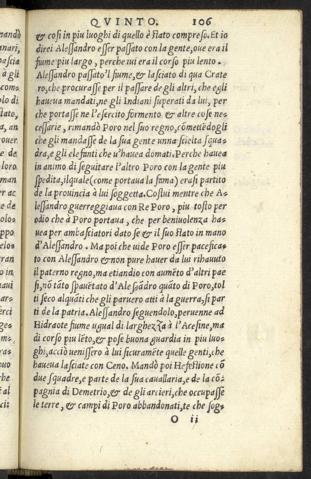 QVINTO. 106
& cosi in piu luoghi di quello è stato compreso. Et io
direi Alessandro esser passato con la gente, oue era il
fiume piu largo, perche iui era il corso piu lento.
Alessandro passato'l fiume, & lasciato di qua Crate
ro, che procurasse per il passare de gli altri, che egli
haueua mandati, ne gli Indiani superati da lui, per
che portasse ne l'essercito formento & altre cose ne-
cessarie, rimãdò Poro nel suo regno, cõmettẽdogli
che gli mandasse de la sua gente unna scielta squa-
dra, e gli elefanti che u'hauea domati. Perche hauea
in animo di seguitare l'altro Poro con la gente piu
spedita, ilquale (come portaua la fama) erasi partito
de la prouincia à lui soggetta. Costui mentre che A-
lessandro guerreggiaua con Re Poro, piu tosto per
odio che à Poro portaua, che per beniuolenza ha-
uea per ambasciatori dato se & il suo stato in mano
d'Alessandro. Ma poi che uide Poro esser pacefica-
to con Alessandro & non pure hauer da lui rihauuto
il paterno regno, ma etiandio con aumẽto d'altri pae
si, nõ tãto spauẽtato d'Alesãdro quãto di Poro, tol
ti seco alquãti che gli paruero atti à la guerra, si par
tì de la patria. Alessandro seguendolo, peruenne ad
Hidraote fiume ugual di larghezza à l'Acesine, ma
di corso piu lẽto, & pose buona guardia in piu luo-
ghi, acciò uenissero à lui sicuramẽte quelle genti, che
haueua lasciate con Ceno. Mandò poi Hefestione cõ
due squadre, e parte de la sua cauallaria, e de la cõ-
pagnia di Demetrio, & de gli arcieri, che occupasse
le terre, & campi di Poro abbandonati, te che sog-
O ii